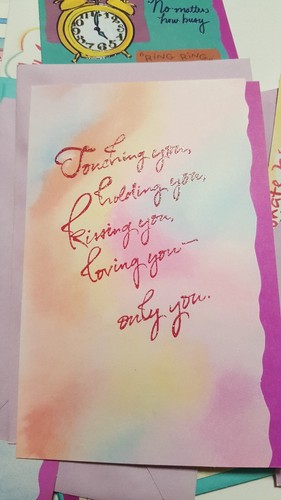 "No matter
how busy
"RING RING
Touching you,
holding you,
kissing you,
loving you—
only you.